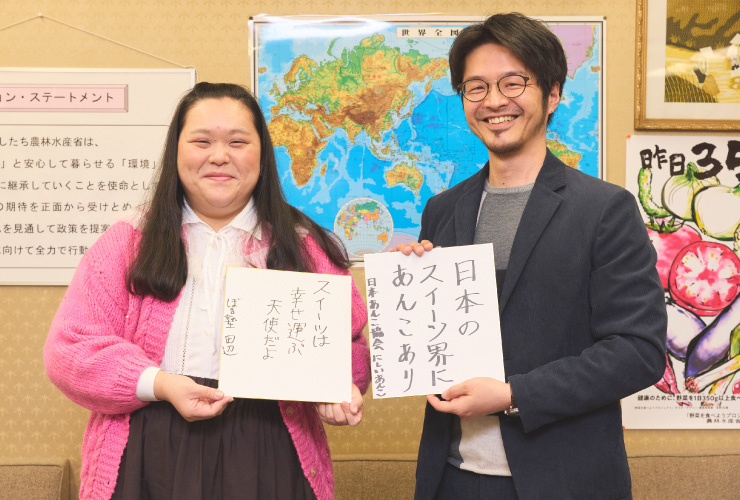 世界全図
ョン・ステートメント
したち農林水産省は、
」と安心して暮らせる「環境」
に継承していくことを使命とし
の期待を正面から受けとめ
を見通して政策を提案
に向けて全力で行動
スイーツは
幸せ運ぶ
天使だよ
ぼる塾 田辺
日本の
スイーツ界に
あんこあり
日本あんこ協会 にしいあんこ
昨日、35
健康のために、野菜を1日350g以上食べ
「野菜を食べようプロジ
農林水産省